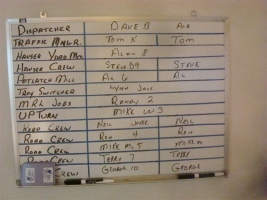 DISPATCHER DAVE B
TRAFFIC MNGR. TOM K TOM
HAUSER YARD
HAUSER CREW STEVE STEVE
POTLATCH MILL AL 6 AL
TROY SWITCHER LYNN
MRL JOBS RANDY 2
UPTURN MIKE
ROAD CREW NEIL NEIL
ROAD CREW RON 4 RON
ROAD CREW MIKE MIKE
ROAD CREW TERRY 7 TERRY
CREW GEORGE 10 GEORGE